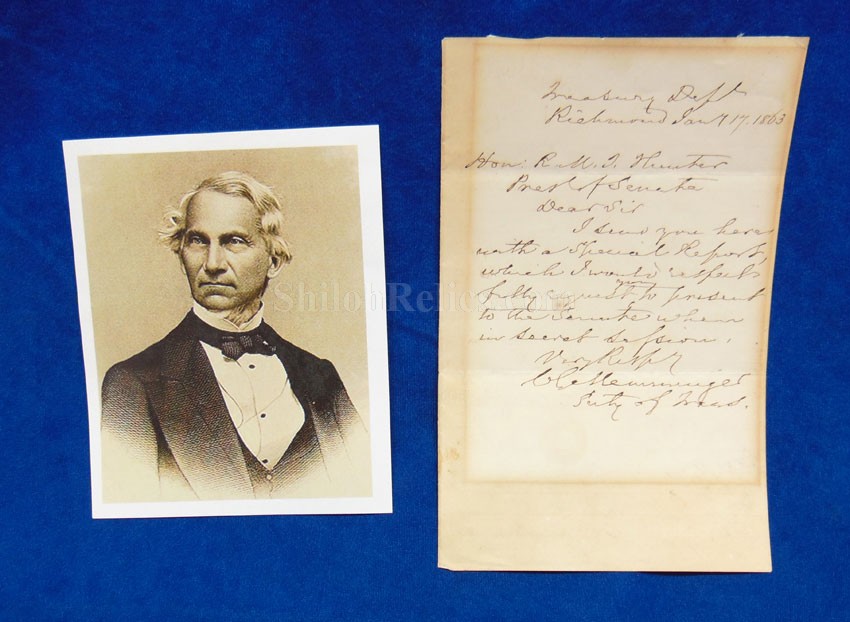 Treasury Dept
Richmond Jany 17. 1863
Hon: R. M. T. Hunter
Prest of Senate
Dear Sir
I send you here
with a Special Report,
which I would respect
fully request you to present
to the Senate when
in secret session.
Very Respy
C G Memminger
Secty of Treas.
ShilohRelics.com